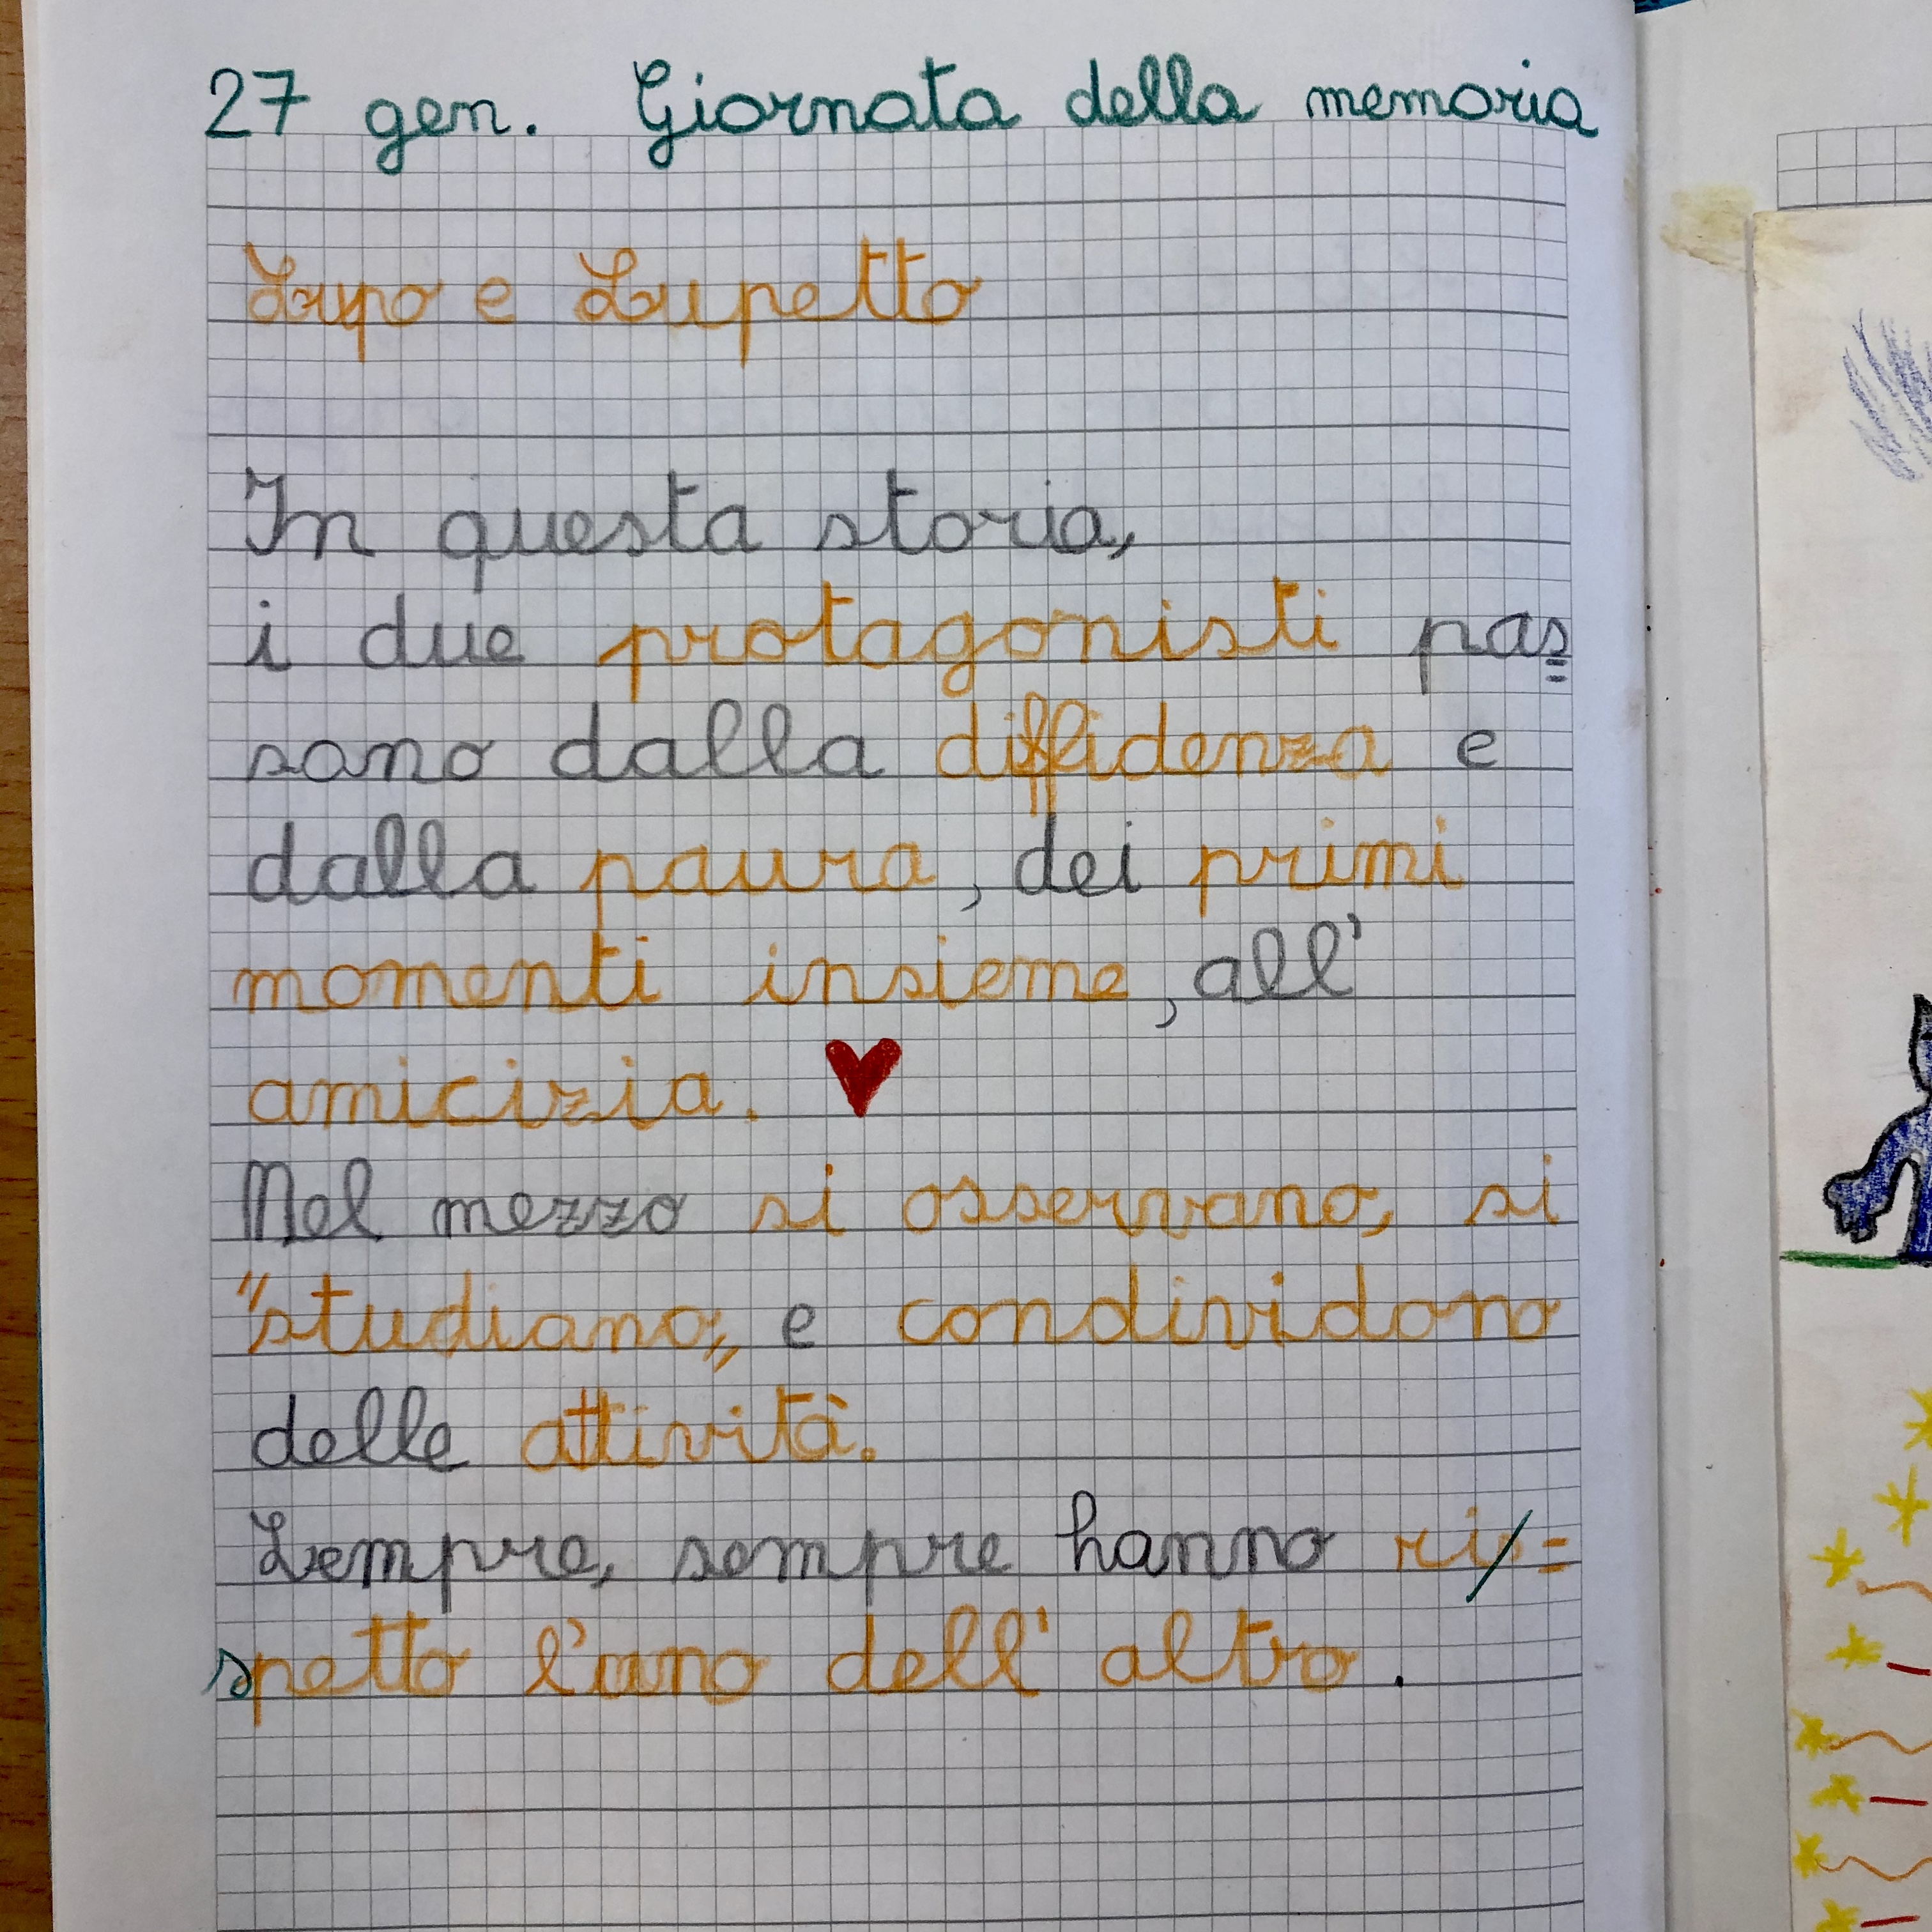 27 gen. Giornata della memoria
Lupo e Lupetto
In questa storia,
i due protagonisti pas=
sano dalla diffidenza e
dalla paura, dei primi
momenti insieme, all'
amicizia. ♥
Nel mezzo si osservano, si
"studiano,, e condividono
delle attività.
Sempre, sempre hanno ri=
spetto l'uno dell'altro.